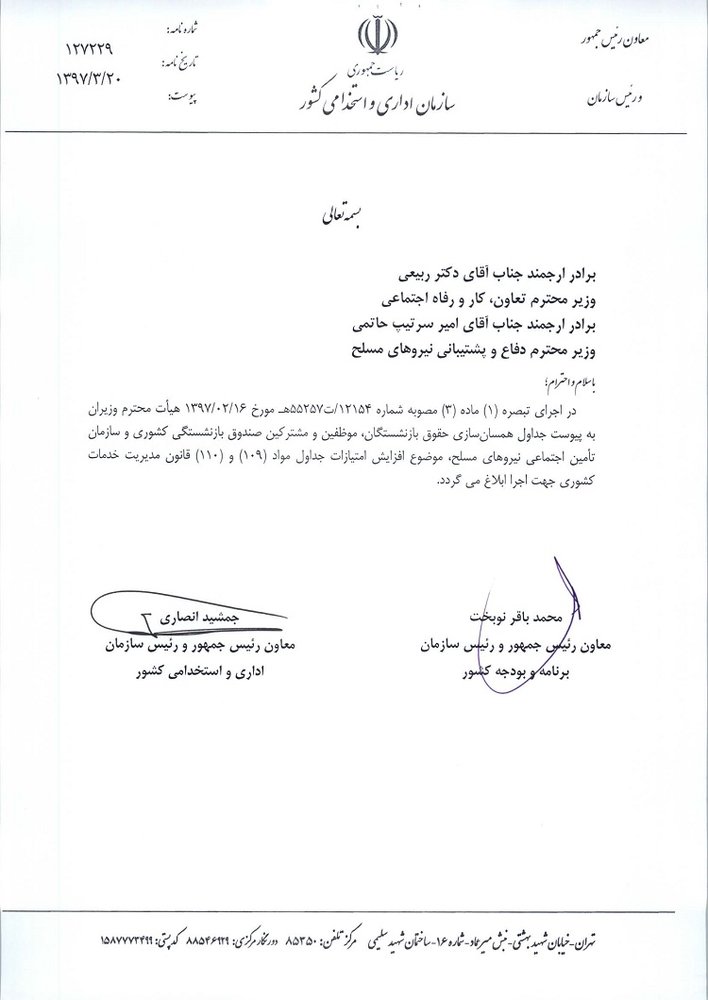 معاون رئیس جمهور
و رئیس سازمان
ریاست جمهوری
سازمان اداری و استخدامی کشور
شماره نامه: ۱۲۷۲۲۹
تاریخ نامه: ۱۳۹۷/۳/۲۰
پیوست:
بسمه تعالی
برادر ارجمند جناب آقای دکتر ربیعی
وزیر محترم تعاون، کار و رفاه اجتماعی
برادر ارجمند جناب آقای امیر سرتیپ حاتمی
وزیر محترم دفاع و پشتیبانی نیروهای مسلح
باسلام و احترام؛
در اجرای تبصره (۱) ماده (۳) مصوبه شماره ۱۲۱۵۴/ت۵۵۲۵۷هـ مورخ ۱۳۹۷/۰۲/۱۶ هیأت محترم وزیران
به پیوست جداول همسان‌سازی حقوق بازنشستگان، موظفین و مشترکین صندوق بازنشستگی کشوری و سازمان
تأمین اجتماعی نیروهای مسلح، موضوع افزایش امتیازات جداول مواد (۱۰۹) و (۱۱۰) قانون مدیریت خدمات
کشوری جهت اجرا ابلاغ می گردد.
محمد باقر نوبخت
معاون رئیس جمهور و رئیس سازمان
برنامه و بودجه کشور
جمشید انصاری
معاون رئیس جمهور و رئیس سازمان
اداری و استخدامی کشور
تهران-خیابان شهید بهشتی-نبش میرعماد-شماره ۱۶-ساختمان شهید سلیمی مرکز تلفن: ۸۵۳۵۰ دورنگار مرکزی: ۸۸۵۴۶۹۲۹ کدپستی: ۱۵۸۷۷۷۳۴۹۹